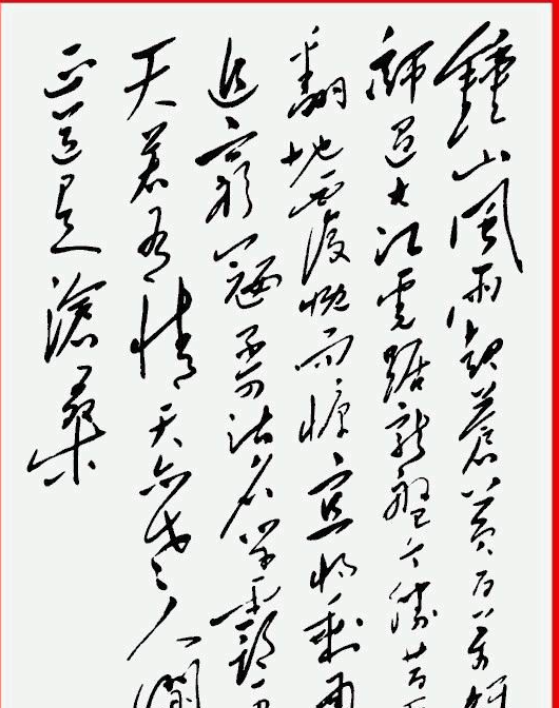 鍾山風雨起蒼黃百万雄
師過大江虎踞龍盤今勝昔
翻地覆慨而慷宜將剩勇
追窮寇不可沽名學霸
天若有情天亦老人間
正道是滄桑